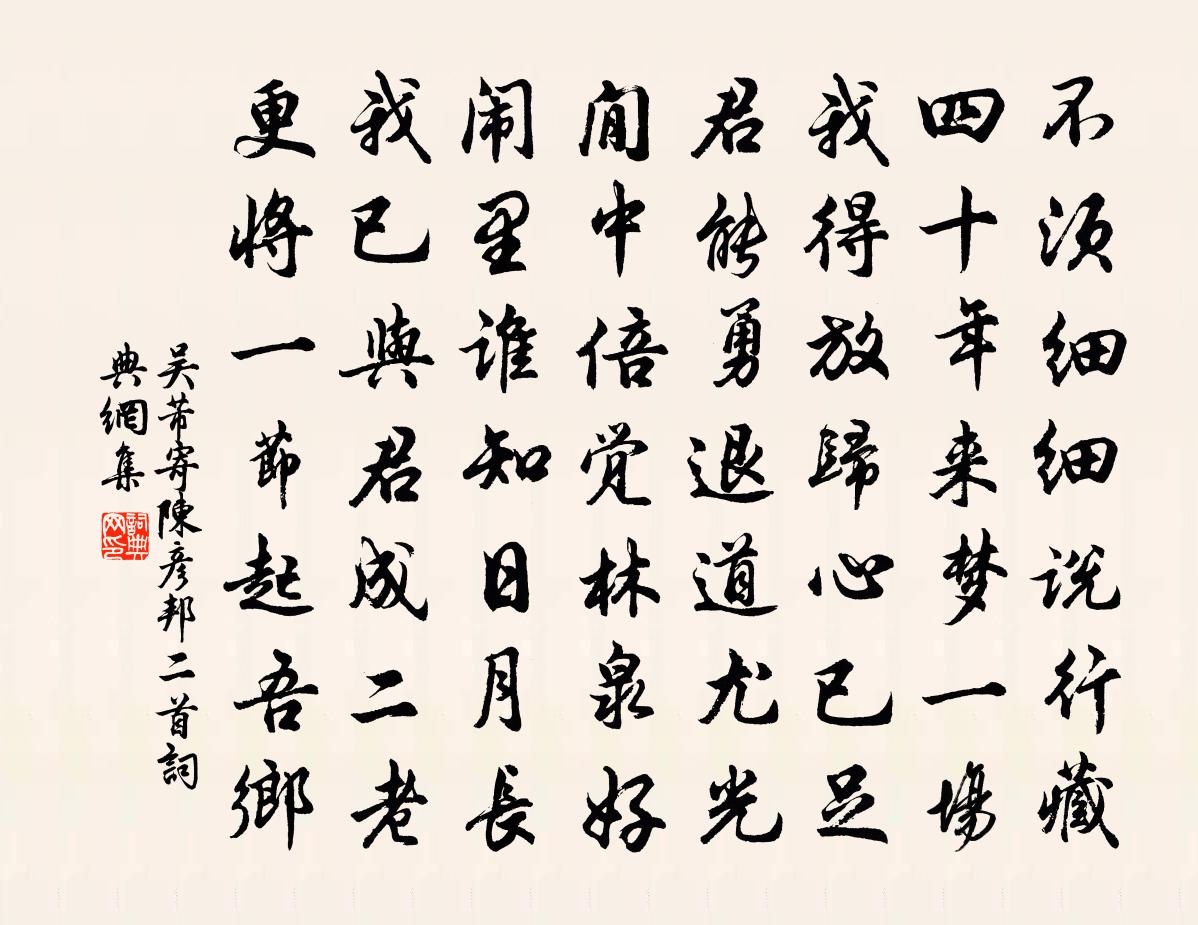 不须细细说行藏
四十年来梦一場
我得放歸心已足
君能勇退道尤光
閒中倍觉林泉好
闹里谁知日月長
我已與君成二老
更將一節起吾鄉
吴芾寄陳彦邦二首詞
典網集
詞典
网印